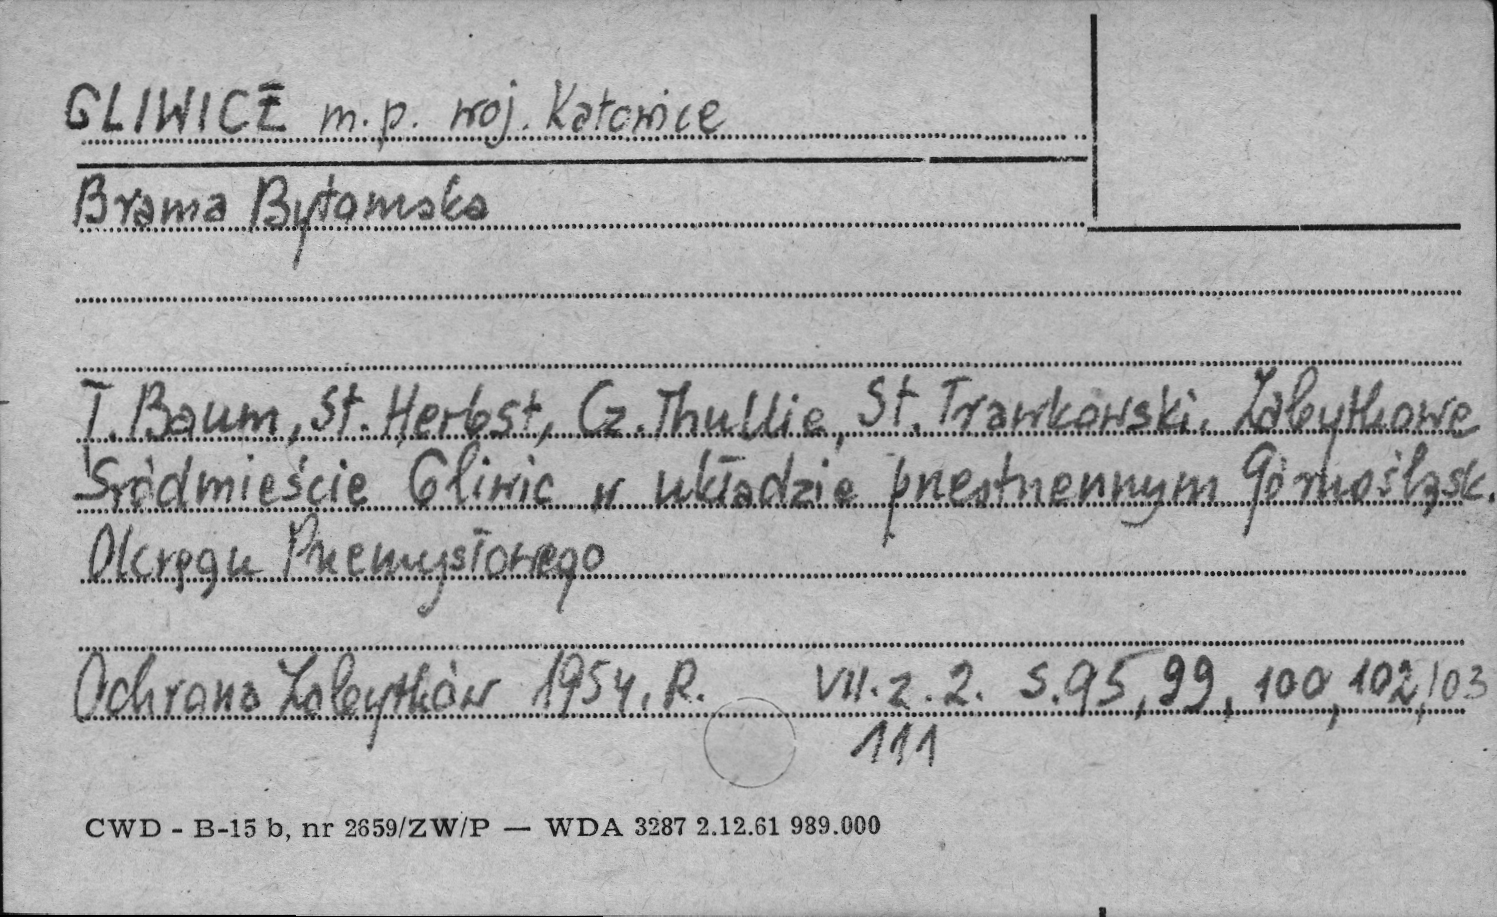 GLIWICE m.p. woj. Katowice
Brama Bytomska
T. Baum, St. Herbst, Cz. Thullie, St. Trawkowski. Zabytkowe
Śródmieście Gliwic w układzie przestrzennym Górnośląsk.
Okręgu Przemysłowego
Ochrona Zabytków 1954, R. VII. z. 2. s. 95, 99, 100, 102, 103
111
CWD - B-15 b, nr 2659/ZW/P — WDA 3287 2.12.61 989.000